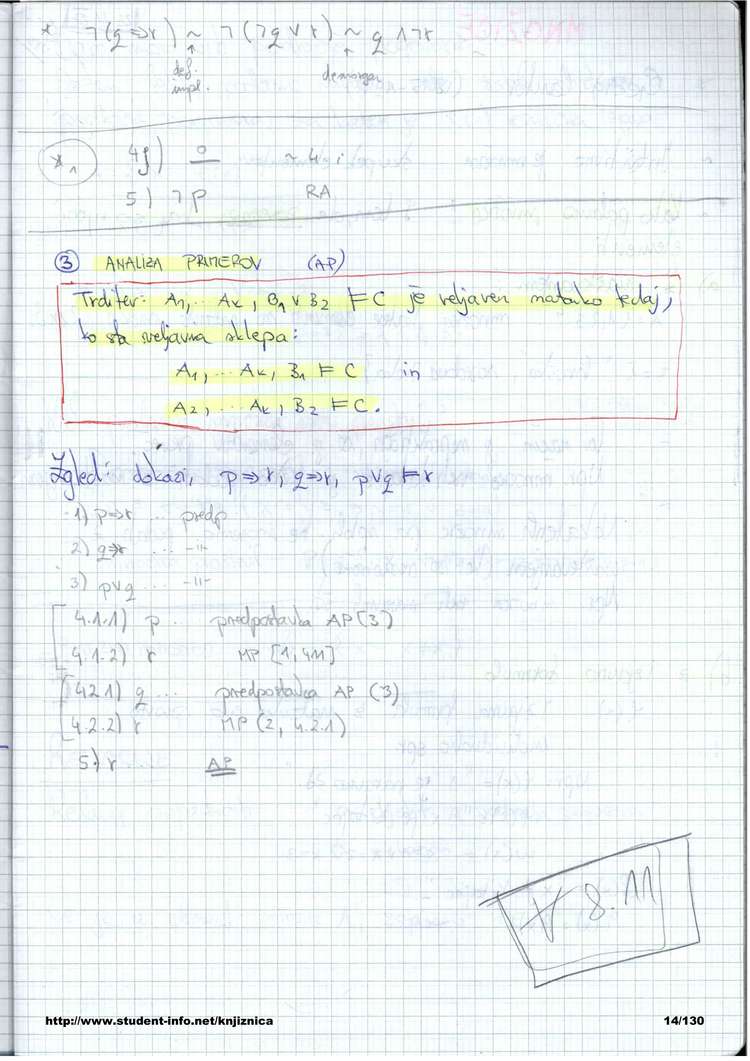 * ¬(q⇒r) ~ ¬(¬q∨r) ~ q∧¬r
def. impl. demorgan
*₁ 4g) 0 ~4 i
5) ¬p RA
③ ANALIZA PRIMEROV (AP)
Trditev: A₁, ... Aₖ, B₁ ∨ B₂ ⊨ C je veljaven natanko tedaj,
ko sta veljavna sklepa:
A₁, ... Aₖ, B₁ ⊨ C in
A₂, ... Aₖ, B₂ ⊨ C.
Zgled: dokazi, p⇒r, q⇒r, p∨q ⊨ r
1) p⇒r ... predp
2) q⇒r ... -||-
3) p∨q ... -||-
4.1.1) p ... predpostavka AP(3)
4.1.2) r MP [1, 411]
4.2.1) q ... predpostavka AP (3)
4.2.2) r MP (2, 4.2.1)
5.) r AP
V 8.11
http://www.student-info.net/knjiznica 14/130